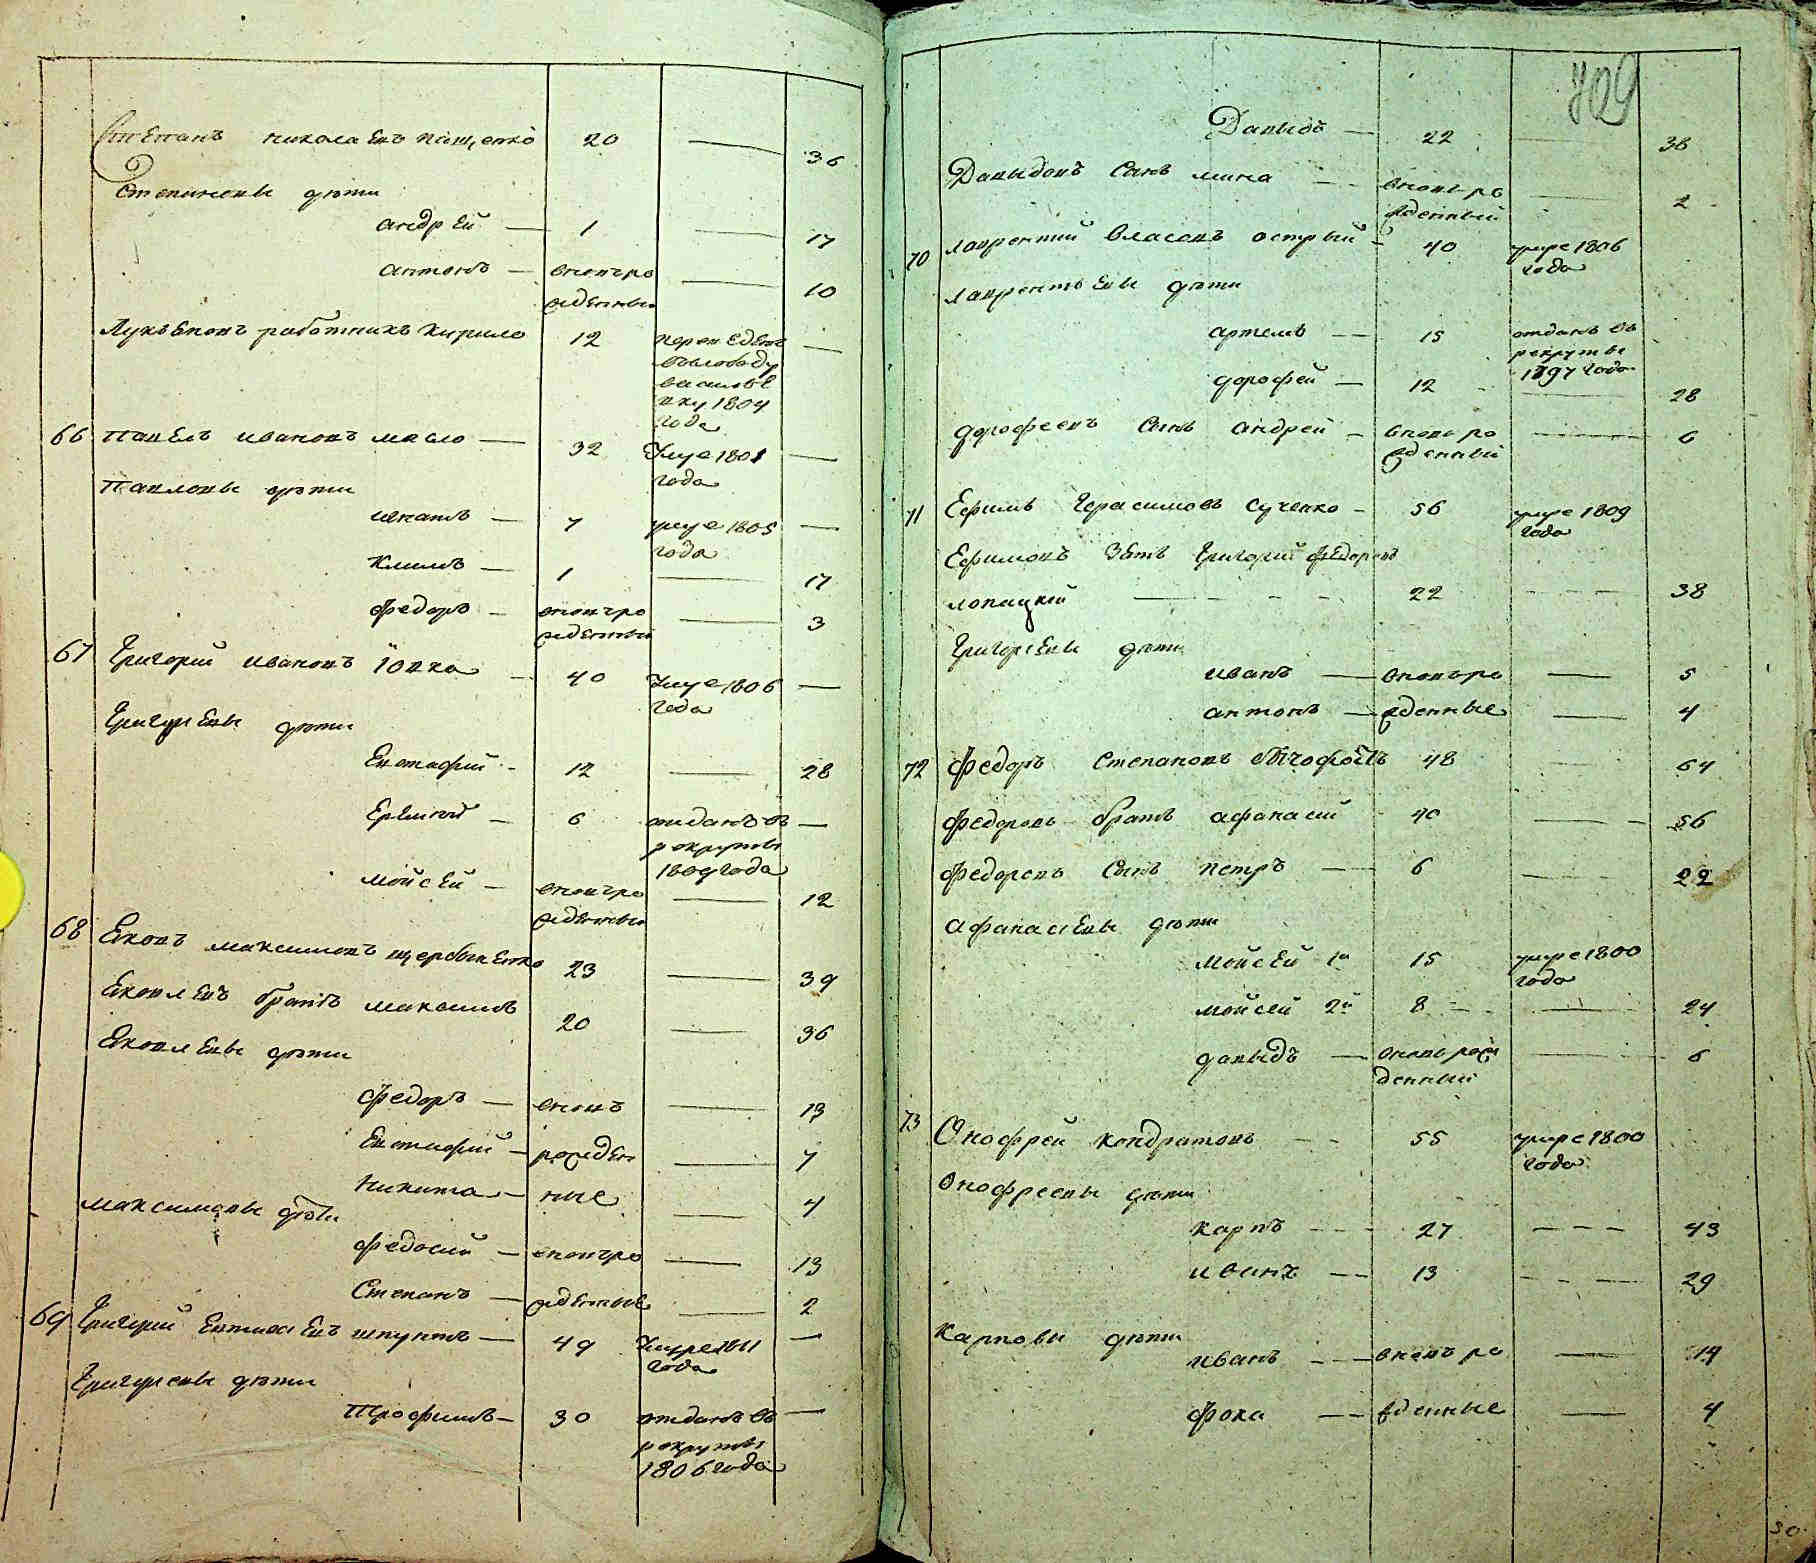 Степанъ николаевъ пащенко 20 — 36
Степановы дѣти
андрей — 1 — 17
антонъ — вновь ро
жденный — 10
работникъ кирило 12 переведенъ —
въ слободу
василье
вку 1804
года
66 Павелъ ивановъ масло — 32 Умре 1801 —
года
Павловы дѣти
игнатъ — 7 умре 1805 —
года
Климъ — 1 — 17
федоръ — вновь ро
жденный — 3
67 Григорий ивановъ 40 Умре 1806 —
года
Григорьевы дѣти
Евстафий - 12 — 28
Еремей — 6 отданъ въ —
рекруты
1809 года
мойсей — вновь ро
жденный — 12
68 Яковъ максимовъ щербиненко 23 — 39
Яковлевъ братъ максимъ 20 — 36
Яковлевы дѣти
федоръ — вновь — 13
Евстафий — рожден — 7
никита — ные — 4
максимовы дѣти
федосий — вновь ро — 13
Степанъ — жденные — 2
69 Григорий шпунтъ — 49 Умре 1811 —
года
Григорьевы дѣти
Трофимъ — 30 отданъ въ —
рекруты
1806 года
709
Давыдъ — 22 — 38
Давыдовъ Сынъ мина — вновь ро
жденный — 2
70 лаврентий власовъ острый — 40 умре 1806
года
лаврентьевы дѣти
артемъ — 15 отданъ въ
рекруты
1797 года
дорофей — 12 — 28
дорофеевъ Сынъ андрей — вновь ро — 6
жденный
71 Ефимъ Герасимовъ сученко - 56 умре 1809
года
Ефимовъ зять Григорий федоровъ
лопацкий — 22 — 38
Григорьевы дѣти
иванъ — вновь ро — 5
антонъ — жденные — 4
72 Федоръ Степановъ 48 — 64
федоровъ братъ афанасий 40 — 56
федоровъ Сынъ петръ — 6 — 22
афанасьевы дѣти
мойсей 1й 15 умре 1800
года
мойсей 2й 8 — 24
давыдъ — вновь рож — 6
денный
73 Онофрей кондратовъ — 55 умре 1800
года
Онофреевы дѣти
карпъ — 27 — 43
иванъ — 13 — 29
Карповы дѣти
иванъ — вновь ро — 14
фока — жденные — 4
30